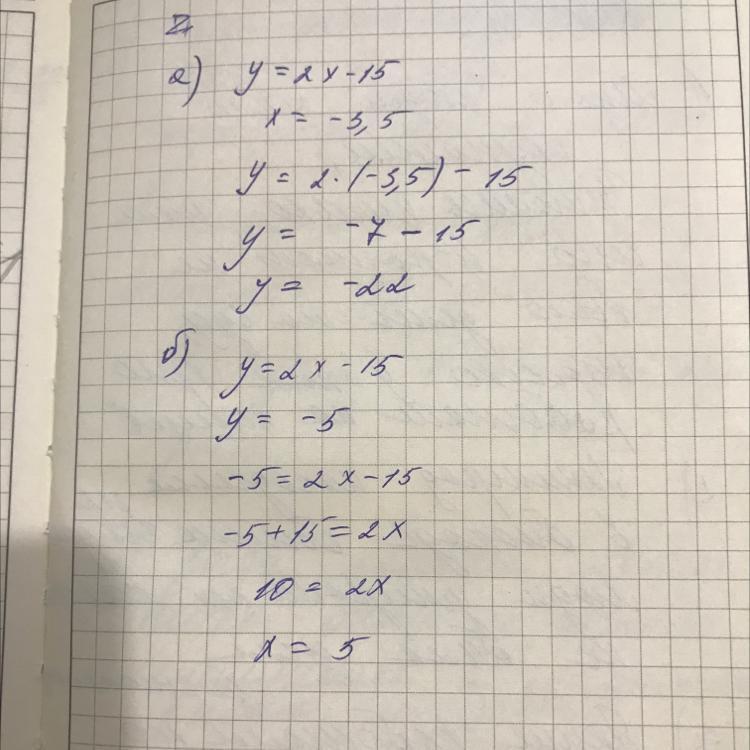 а) y = 2x - 15
x = -3,5
y = 2 · (-3,5) - 15
y = -7 - 15
y = -22
б) y = 2x - 15
y = -5
-5 = 2x - 15
-5 + 15 = 2x
10 = 2x
x = 5